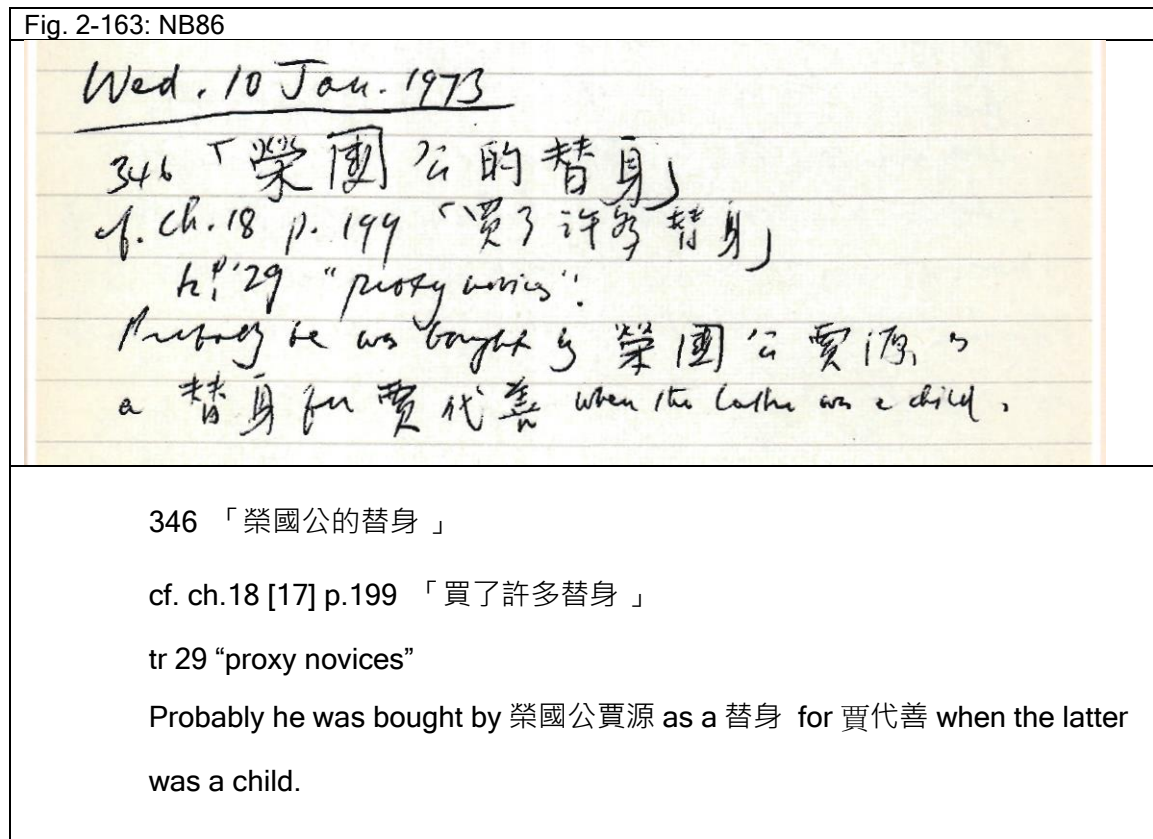 Fig. 2-163: NB86
Wed. 10 Jan. 1973
346 「榮國公的替身」
cf. ch.18 p.199 「買了許多替身」
tr. 29 "proxy novices".
Probably he was bought by 榮國公賈源 as
a 替身 for 賈代善 when the latter was a child.
346 「榮國公的替身 」
cf. ch.18 [17] p.199 「買了許多替身 」
tr 29 “proxy novices”
Probably he was bought by 榮國公賈源 as a 替身 for 賈代善 when the latter
was a child.